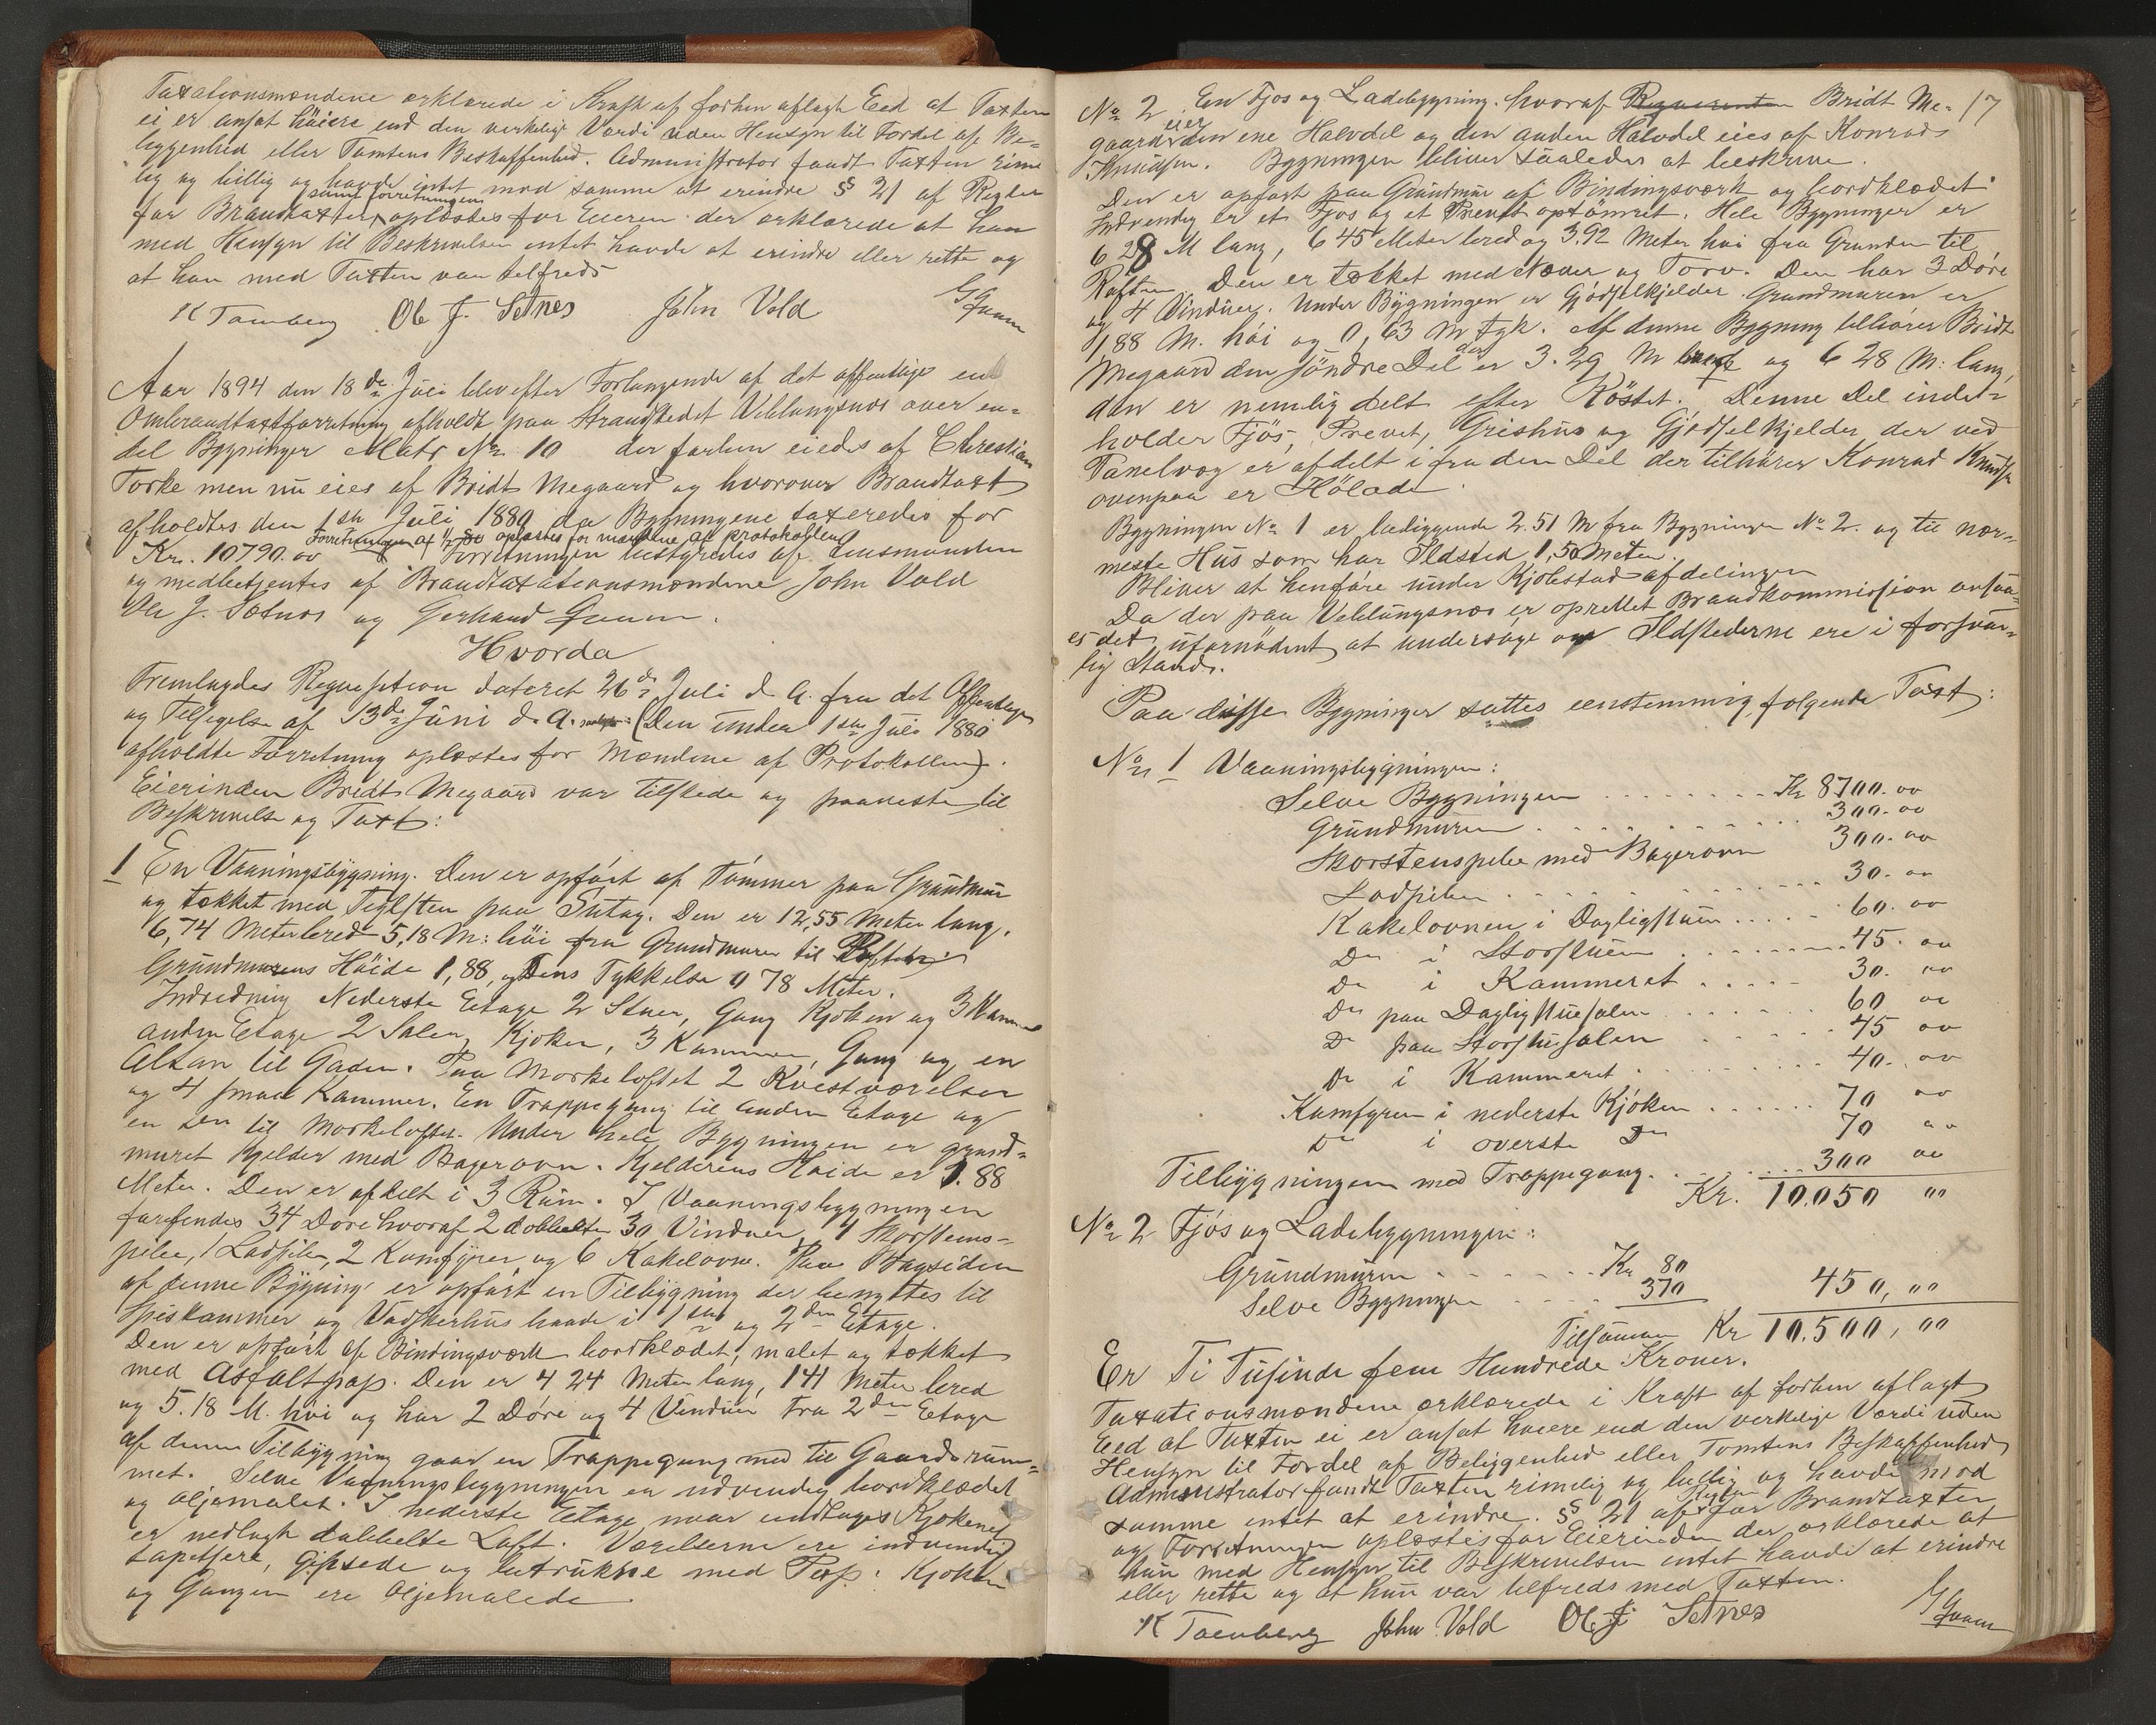 Taxationsmændene erklærede i Kraft af forhen aflagt Eed at Taxten
ei er ansat høiere end den verkelige Værdi uden Hensyn til Fordel af Be=
liggenhed eller Tomtens Beskaffenhed. Administrator fandt Taxten rime
lig og billig og havde intet mod samme at erindre § 21 af Regler
samt Forretningen
for Brandtaxter oplæstes for Eieren der erklærede at han
med Hensyn til Beskrivelsen intet havde at erindre eller rette og
at han med Taxten var tilfreds
K Tomberg Ole J. Setnes John Vold G Quam
Aar 1894 den 18de Juli blev efter Forlangende af det offentlige en
Ombrandtaxtforretning afholdt paa Strandstedet Veblungsnæs over en=
del Bygninger Matr No 10 der forhen eiedes af Christian
Torke men nu eies af Bridt Megaard og hvorover Brandtaxt
afholdtes den 1ste Juli 1880 da Bygningene taxeredes for
Forretningen af 1/7 80 oplæstes for mændene af protokollen
Kr. 10790.00 Forretningen bestyredes af Lensmanden
og medbetjentes af Brandtaxationsmændene John Vold
Ole J. Sætnes og Gerhard Quam.
Hvorda
Fremlagdes Reqvisition dateret 26de Juli d. A. fra det Offentlige
og Tilsigelse af 13de Juni d. A. (Den under 1ste Juli 1880
afholdte Forretning oplæstes for Mændene af Protokollen).
Eierinden Bridt Megaard var tilstede og paaviste til
Beskrivelse og Taxt:
1 En Vaaningsbygning. Den er opført af Tømmer paa Grundmur
og tækket med Teglsten paa Sutag. Den er 12,55 Meter lang.
6,74 Meter bred 5,18 M: høi fra Grundmuren til Raften.
Grundmurens Høide 1,88, og Dens Tykkelse 0 78 Meter.
Indredning Nederste Etage 2 Stuer, Gang Kjøken og 3 Kammer
anden Etage 2 Saler, Kjøken, 3 Kammer, Gang og en
Altan til Gaden. Paa Mørkeloftet 2 Kvistværelser
og 4 smaa Kammer. En Trappegang til anden Etage og
en Do til Mørkeloftet. Under hele Bygningen er grund=
muret Kjelder med Bagerovn. Kjelderens Høide er 1.88
Meter. Den er afdelt i 3 Rum. I Vaaningsbygningen
forefindes 34 Døre hvoraf 2 dobbelte 30 Vinduer, 1 Skorstens=
pibe, 1 Ladpibe, 2 Komfyrer og 6 Kakelovne. Paa Bagsiden
af denne Bygning er opført en Tilbygning der benyttes til
Spiskammer og Vadskerhus baade i 1ste og 2den Etage.
Den er opført af Bindingsværk bordklædet, malet og tækket
med Asfaltpap. Den er 4 24 Meter lang, 141 Meter bred
og 5.18 M. høi og har 2 Døre og 4 Vinduer Fra 2den Etage
af denne Tilbygning gaar en Trappegang ned til Gaardsrum=
met. Selve Vaaningsbygningen er udvendig bordklædet
og oljemalet. I nederste Etage naar undtages Kjøkenet
er nedlagt dobbelte Loft. Værelserne ere indvendig
tapetsere, gipsede og betrukne med Pap. Kjøken
og Gangen ere Oljemalede
17
No 2 En Fjøs og Ladebygning. hvoraf Reqvirenten Bridt Me=
eier
gaard den ene Halvdel og den anden Halvdel eies af Konrad
Knudsen. Bygningen bliver saaledes at beskrive.
Den er opført paa Grundmur af Bindingsværk og bordklædet
Indvendig er et Fjøs og et Prevet optømret. Hele Bygningen er
6 28 M lang, 6 45 Meter bred og 3.92 Meter høi fra Grunden til
Raften Den er tækket med Næver og Torv. Den har 3 Døre
og 4 Vinduer. Under Bygningen er Gjødselkjelder. Grundmuren er
1,88 M. høi og 0,63 M tyk. Af denne Bygning tilhører Bridt
der
Megaard den søndre Del er 3.29 M bred og 6 28 M: lang,
den er nemlig delt efter Røstet. Denne Del indee=
holder Fjøs, Prevet, Grishus og Gjødselkjelder, der ved
Panelvæg er afdelt ifra den Del der tilhører Konrad Knudsen
ovenpaa er Hølade.
Bygningen No 1 er beliggende 2.51 M fra Bygningen No 2. og til nær=
meste Hus som har Ildsted 1,50 Meter.
Bliver at henføre under Kjøbstadafdelingen
Da der paa Veblungsnæs er oprettet Brandkommission ansaa=
es det ufornødent at undersøge om Ildstederne ere i forsvar=
lig Stand.
Paa disse Bygninger sattes eenstemmig følgende Taxt:
No 1 Vaaningsbygningen:
Selve Bygningen . . . . . . . . Kr 8700.00
Grundmuren . . . . . . . . 300.00
Skorstenspibe med Bagerovn 300.00
Ladpiben . . . . . . . . 30.00
Kakelovnen i Dagligstuen . . . . . 60.00
Do i Storstuen . . . . . . . 45.00
Do i Kammeret . . . . . 30.00
Do paa Dagligstuesalen . . . . . 60 00
Do paa Storstusalen . . . . . 45 00
Do i Kammeret . . . . . . . 40.00
Komfyren i nederste Kjøken . . . . . . 70 00
Do i øverste Do 70 00
Tilbygningen med Trappegang. . . . . . 300 00
Kr. 10.050 00
No 2 Fjøs og Ladebygningen:
Grundmuren . . . . . . Kr 80
Selve Bygningen . . . . 370 450,00
Tilsammen Kr 10.500,00
Er Ti Tusinde fem Hundrede Kroner.
Taxationsmændene erklærede i Kraft af forhen aflagt
Eed at Taxten ei er ansat høiere end den verkelige Værdi uden
Hensyn til Fordel af Beliggenhed eller Tomtens Beskaffenhed
Administrator fandt Taxten rimelig og billig og havde mod
Regler
samme intet at erindre. § 21 af for Brandtaxter
og Forretningen oplæstes for Eierinden der erklærede at
hun med Hensyn til Beskrivelsen intet havde at erindre
eller rette og at hun var tilfreds med Taxten.
K Tomberg John Vold Ole J Setnes G Quam